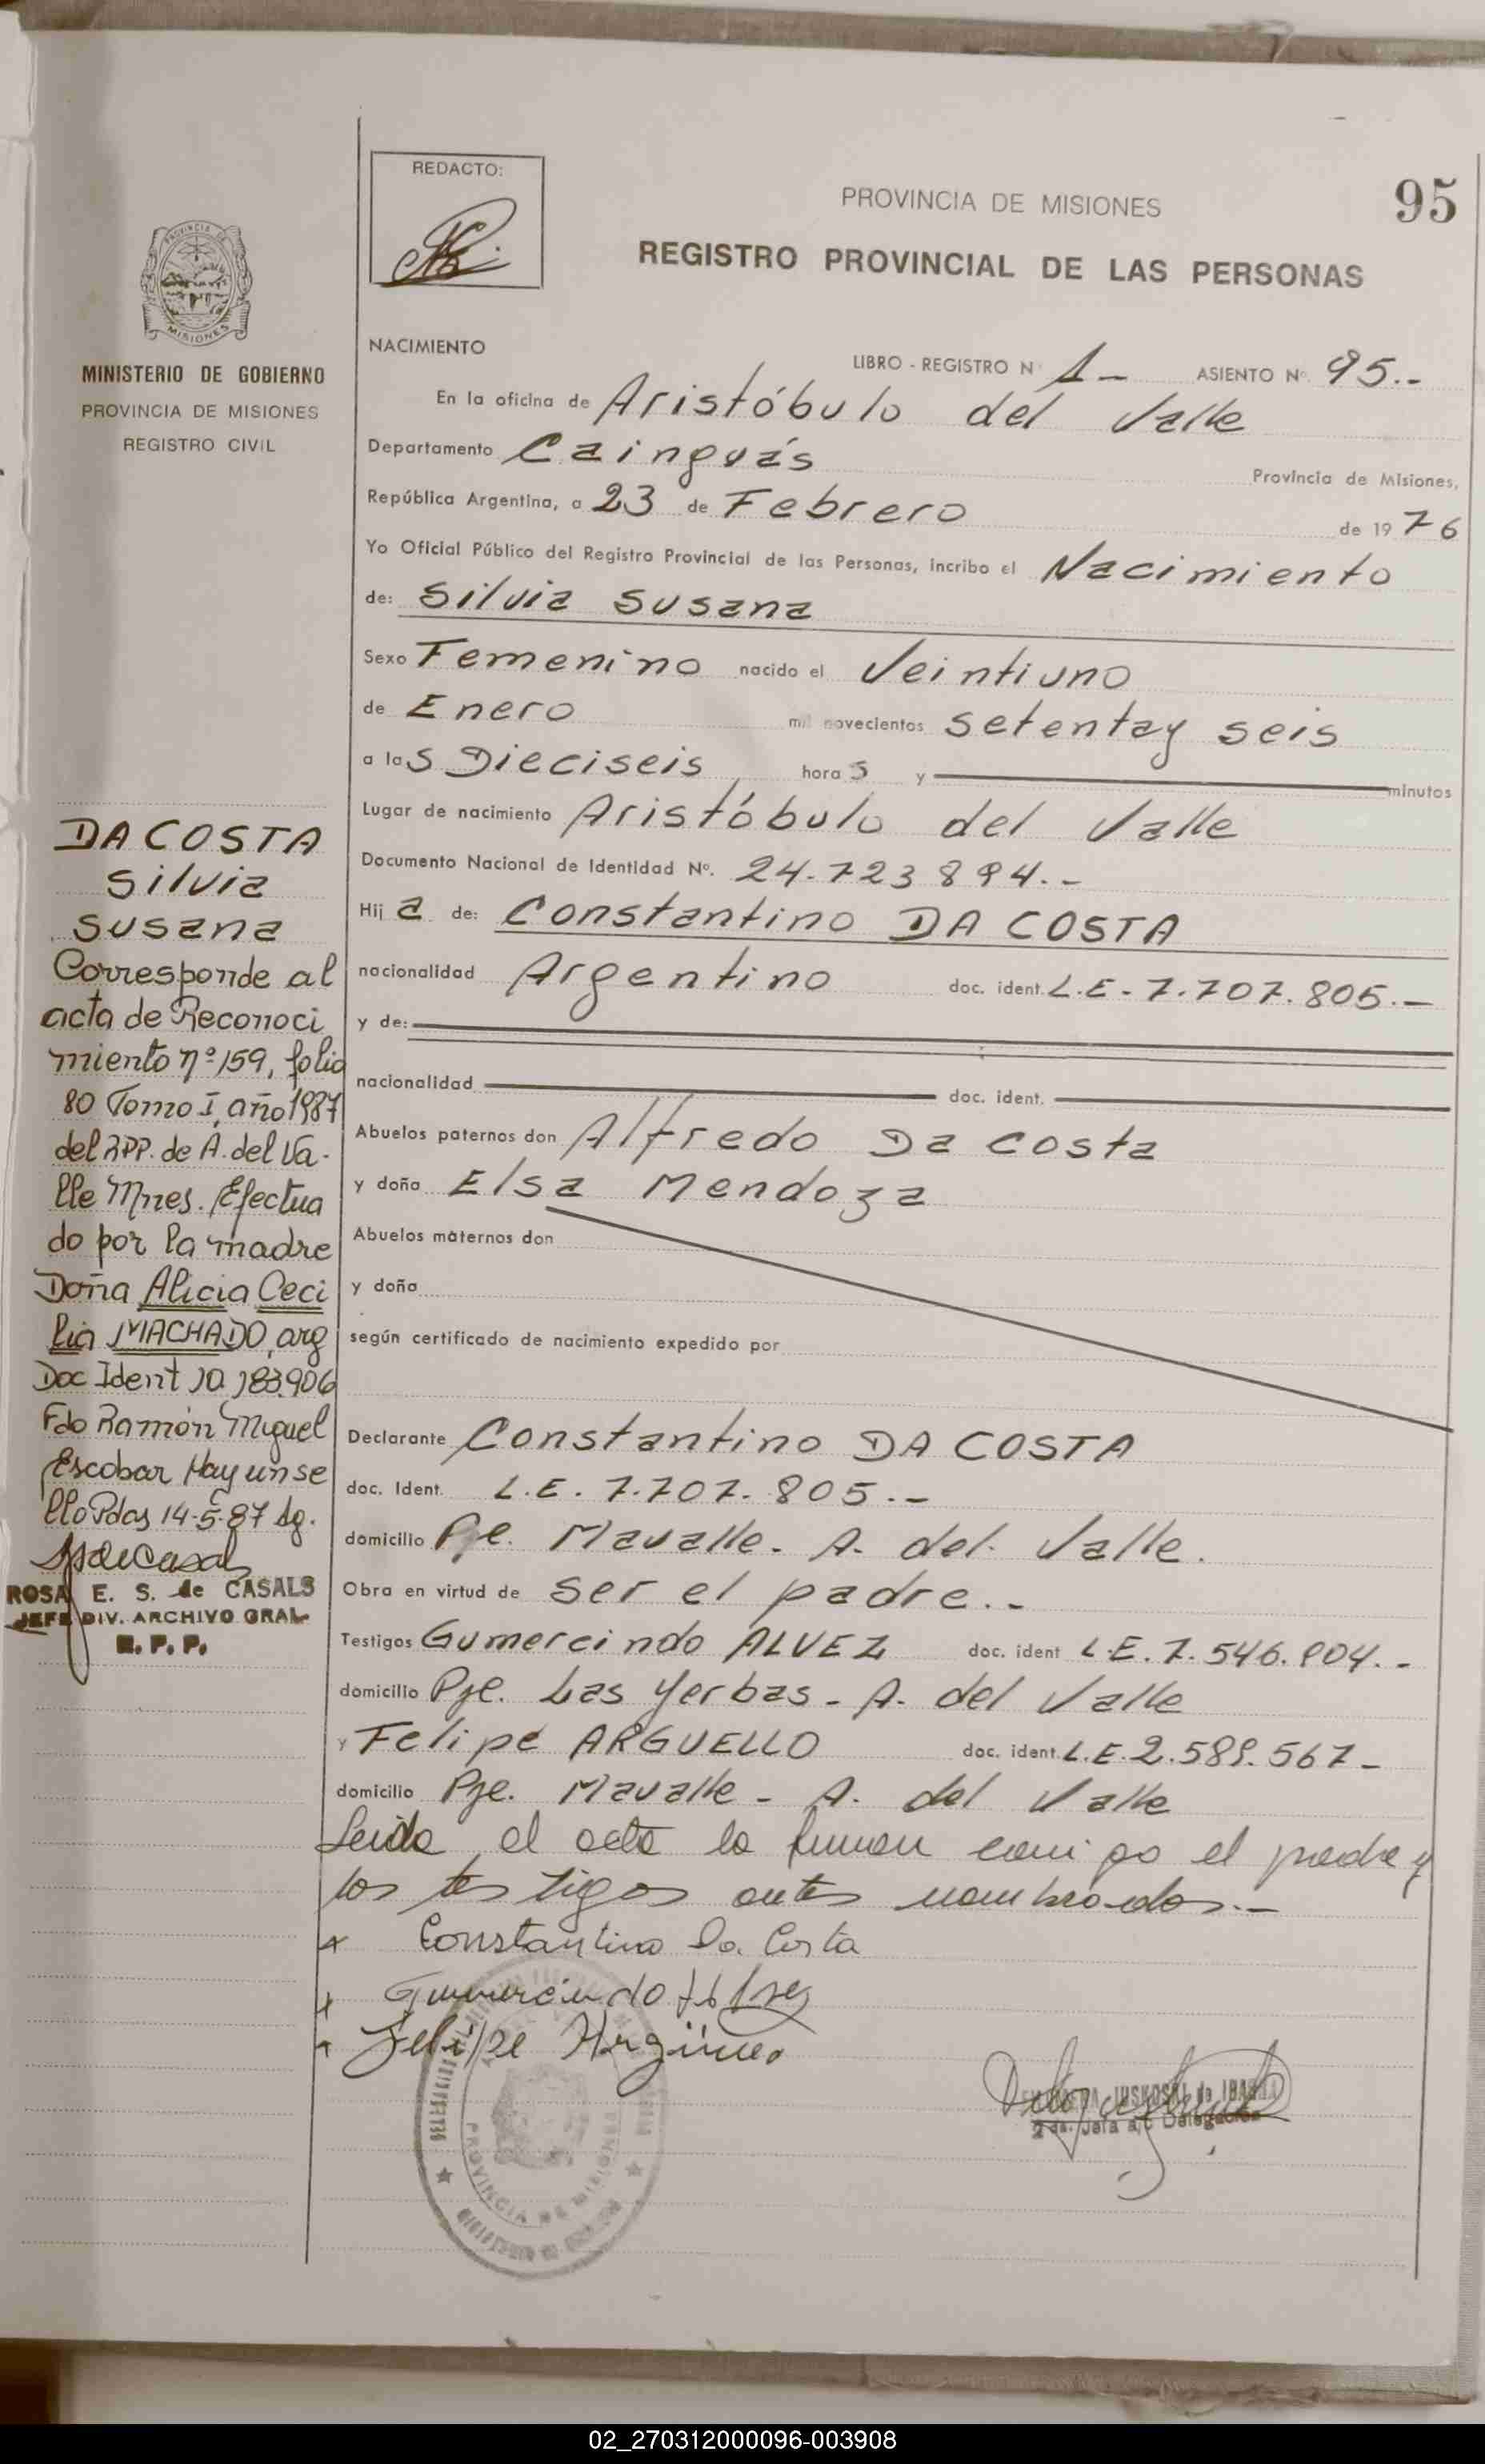 95
REDACTO:
PROVINCIA DE MISIONES
REGISTRO PROVINCIAL DE LAS PERSONAS
MISIONES
MINISTERIO DE GOBIERNO
PROVINCIA DE MISIONES
REGISTRO CIVIL
NACIMIENTO
LIBRO - REGISTRO Nº 1 - ASIENTO Nº. 95.-
En la oficina de Aristóbulo del Valle
Departamento Cainguás Provincia de Misiones,
República Argentina, a 23 de Febrero de 1976
Yo Oficial Público del Registro Provincial de las Personas, incribo el Nacimiento
de: Silvia Susana
Sexo Femenino nacido el Veintiuno
de Enero mil novecientos setenta y seis
a las Dieciseis horas y minutos
Lugar de nacimiento Aristóbulo del Valle
Documento Nacional de Identidad Nº. 24.723 894.-
Hija de: Constantino DA COSTA
nacionalidad Argentino doc. ident. L.E - 7.707.805.-
y de:
nacionalidad doc. ident.
Abuelos paternos don Alfredo Da Costa
y doña Elsa Mendoza
Abuelos maternos don
y doña
según certificado de nacimiento expedido por
Declarante Constantino DA COSTA
doc. Ident. L.E. 7.707.805.-
domicilio Pje. Mavalle - A. del Valle.
Obra en virtud de ser el padre.-
Testigos Gumercindo ALVEZ doc. ident L.E. 7.546.904.-
domicilio Pje. Las Yerbas - A. del Valle
y Felipe ARGUELLO doc. ident. L.E. 2.589.567-
domicilio Pje. Mavalle - A. del Valle
Leida el acta la firman conmigo el padre y
los testigos antes nombrados.-
x Constantino Da Costa
x Gumercindo
x Felipe
2da. Jefa a/c Delegación
PROVINCIA DE MISIONES
DA COSTA
Silvia
Susana
Corresponde al
acta de Reconoci
miento nº 159, folio
80 Tomo I, año 1987
del RPP. de A. del Va-
lle Mnes. Efectua
do por la madre
Doña Alicia Ceci
lia MACHADO, arg
Doc Ident 10.183.906
Fdo Ramón Miguel
Escobar Hay un se
llo Pdas 14-5-87 dg.
ROSA E. S. de CASALS
JEFE DIV. ARCHIVO GRAL.
R. P. P.
02_270312000096-003908